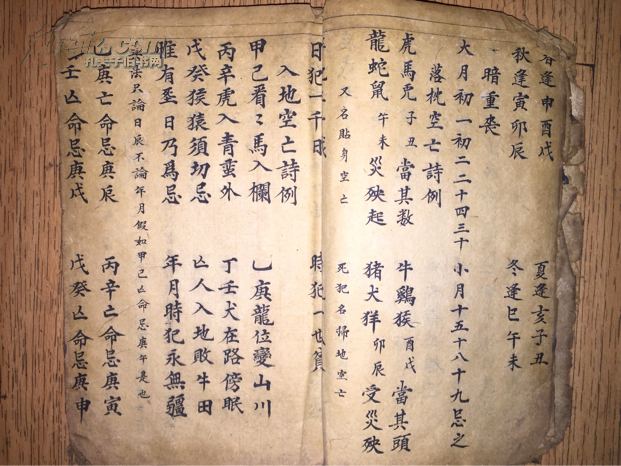 春逢申酉戌 夏逢亥子丑
秋逢寅卯辰 冬逢巳午未
暗重丧
大月初一初二二十四三十 小月十五十八十九忌之
落枕空亡詩例
虎馬兎子丑當其数 牛鷄猴酉戌當其頭
龍蛇鼠午未災殃起 猪犬羊卯辰受災殃
又名貼身空亡 死犯名掃地空亡
日犯一千 時犯一世貧
入地空亡詩例
甲己看〻馬入欄 乙庚龍位變山川
丙辛虎入青蛮外 丁壬犬在路傍眠
戊癸猴猿須切忌 亡人入地敗牛田
唯有至日乃爲忌 年月時犯永無疆
法只論日辰不論年月假如甲己亡命忌庚午是也
庚亡命忌庚辰 丙辛亡命忌庚寅
壬亡命忌庚戌 戊癸亡命忌庚申
孔夫子旧书网